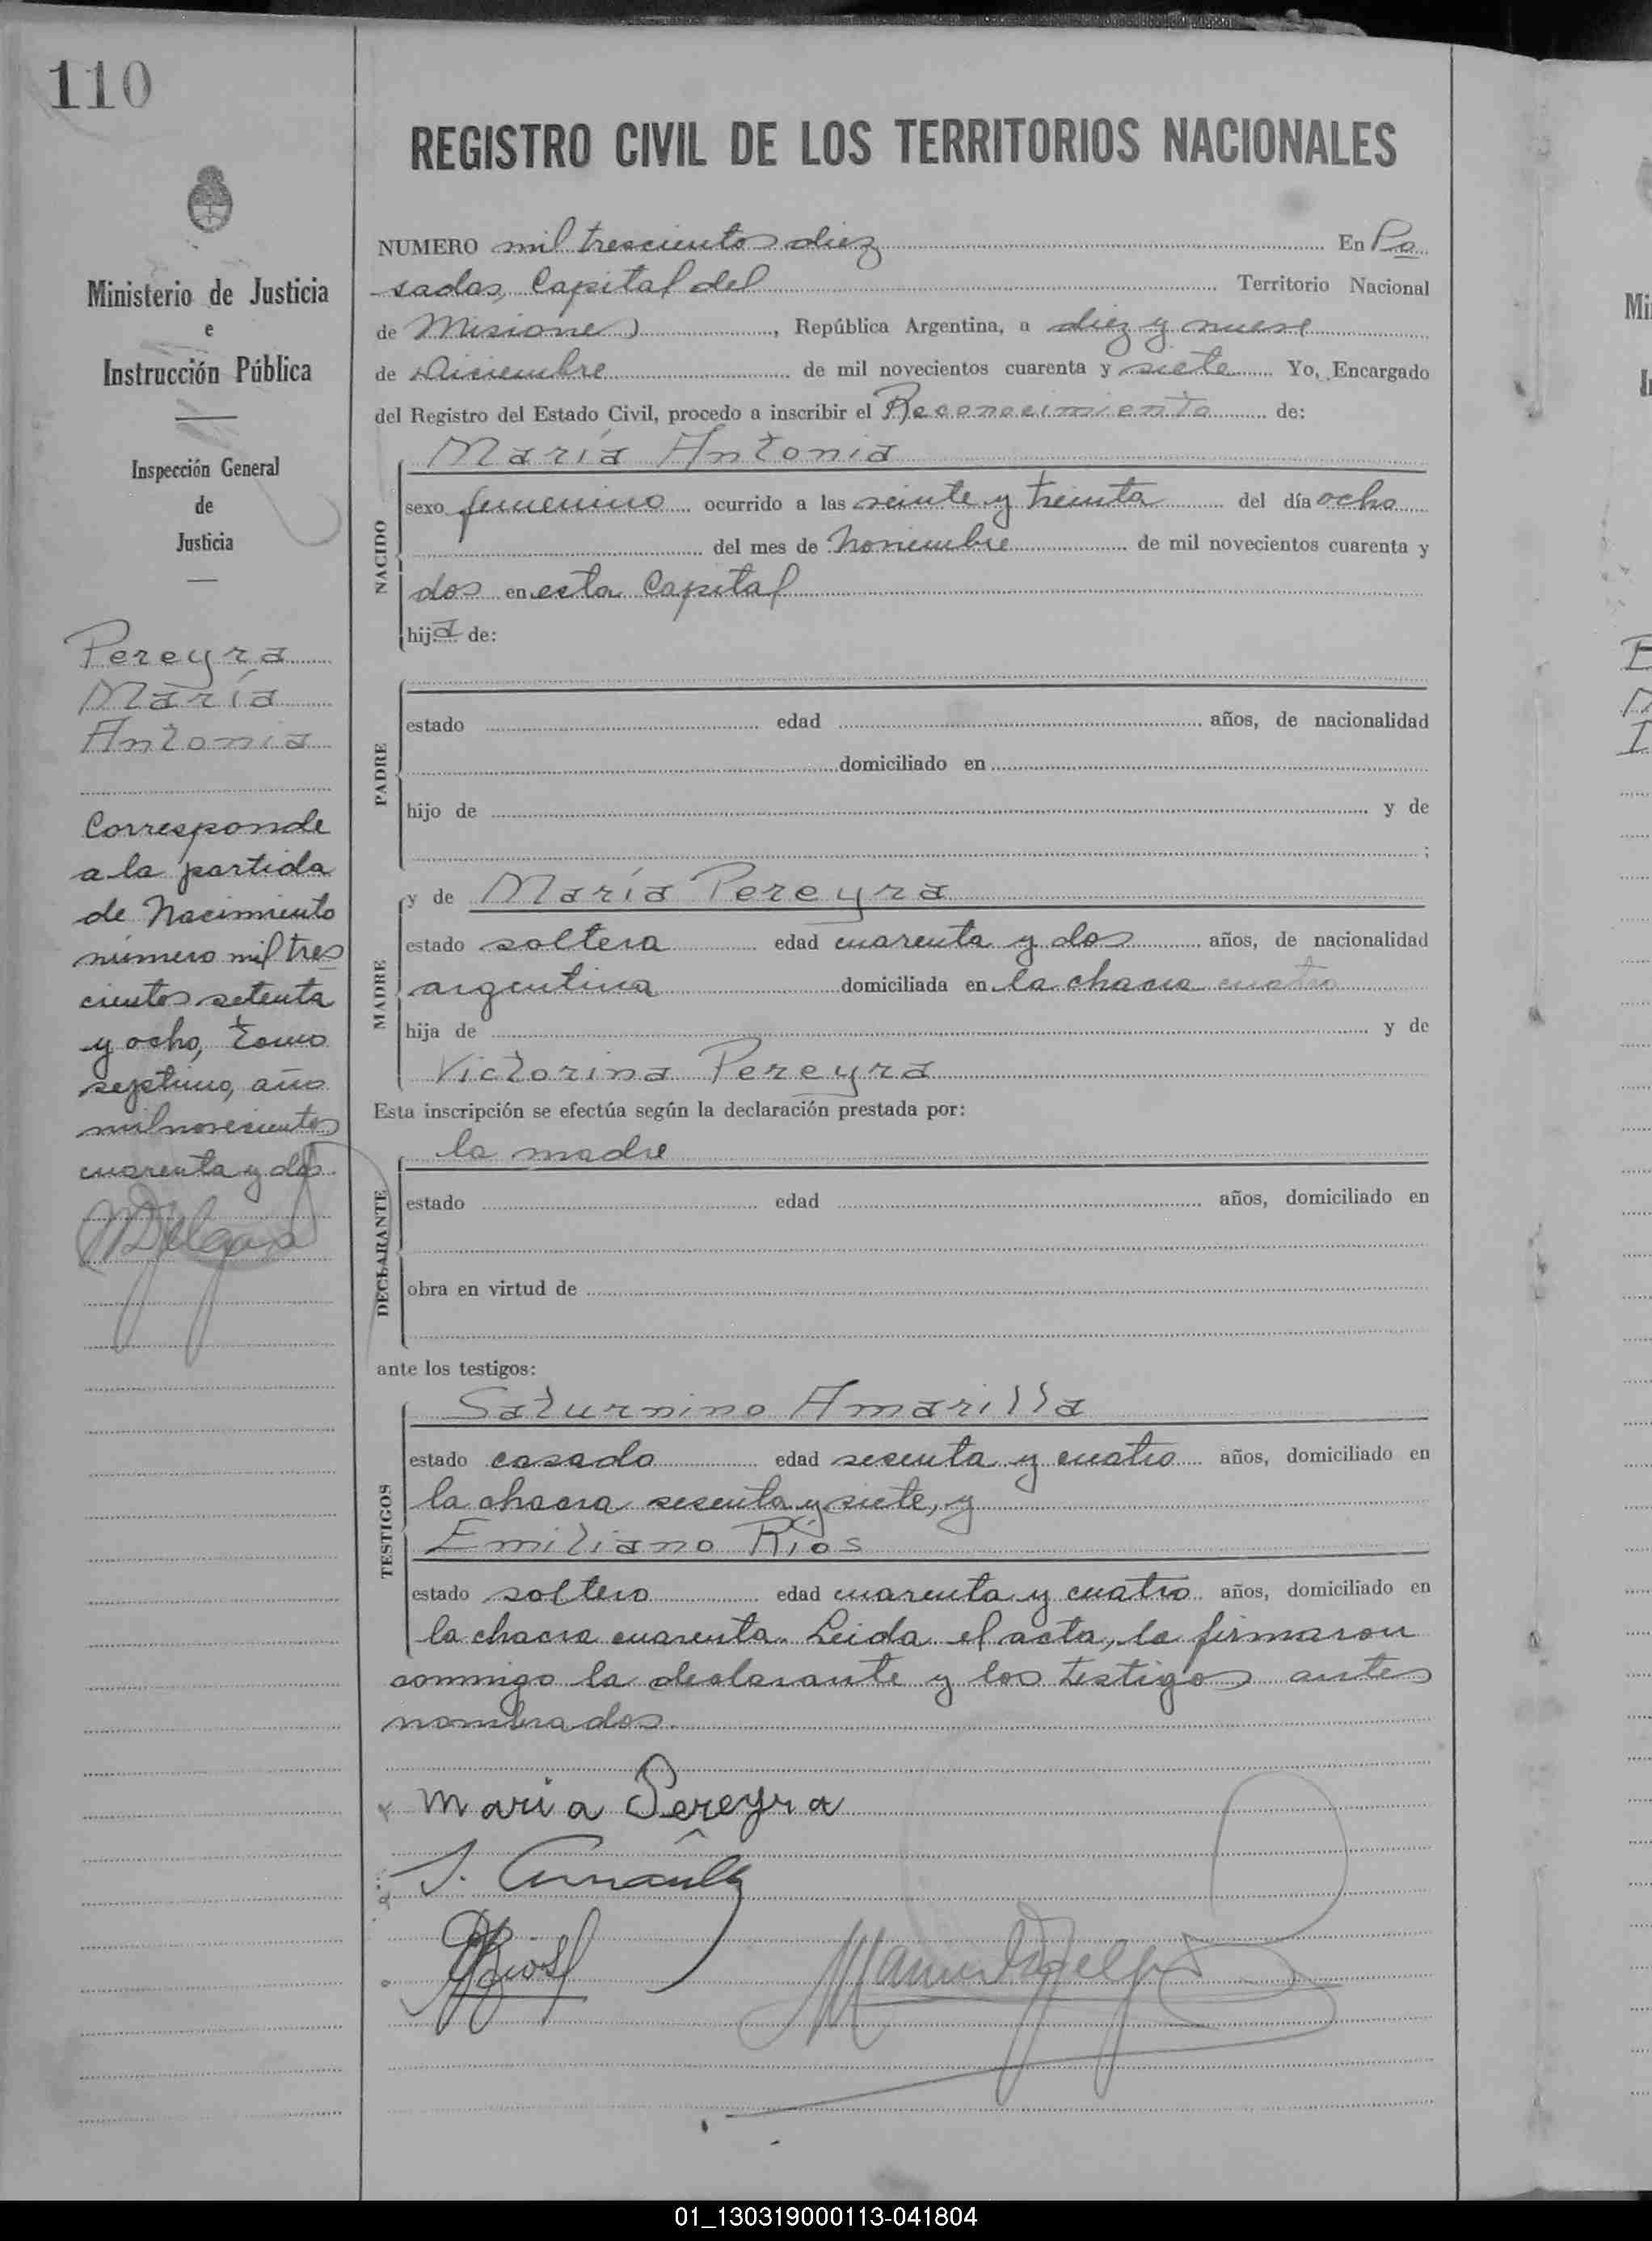 110
REGISTRO CIVIL DE LOS TERRITORIOS NACIONALES
Ministerio de Justicia
e
Instrucción Pública
Inspección General
de
Justicia
Pereyra
María
Antonia
Corresponde
a la partida
de Nacimiento
número mil tres
cientos setenta
y ocho, tomo
septimo, año
mil novecientos
cuarenta y dos
MDelgado
NUMERO mil trescientos diez En Po
sadas, Capital del Territorio Nacional
de Misiones, República Argentina, a diez y nueve
de Diciembre de mil novecientos cuarenta y siete Yo, Encargado
del Registro del Estado Civil, procedo a inscribir el Reconocimiento de:
NACIDO
María Antonia
sexo femenino ocurrido a las veinte y treinta del día ocho
del mes de Noviembre de mil novecientos cuarenta y
dos en esta Capital
hija de:
PADRE
estado edad años, de nacionalidad
domiciliado en
hijo de y de
;
MADRE
y de María Pereyra
estado soltera edad cuarenta y dos años, de nacionalidad
argentina domiciliada en la chacra cuatro
hija de y de
Victorina Pereyra
Esta inscripción se efectúa según la declaración prestada por:
DECLARANTE
la madre
estado edad años, domiciliado en
obra en virtud de
ante los testigos:
TESTIGOS
Saturnino Amarilla
estado casado edad sesenta y cuatro años, domiciliado en
la chacra sesenta y siete, y
Emiliano Ríos
estado soltero edad cuarenta y cuatro años, domiciliado en
la chacra cuarenta. Leida el acta, la firmaron
conmigo la declarante y los testigos antes
nombrados.
Maria Pereyra
S. Amarilla
ERios
Manuel Delgado
01_130319000113-041804